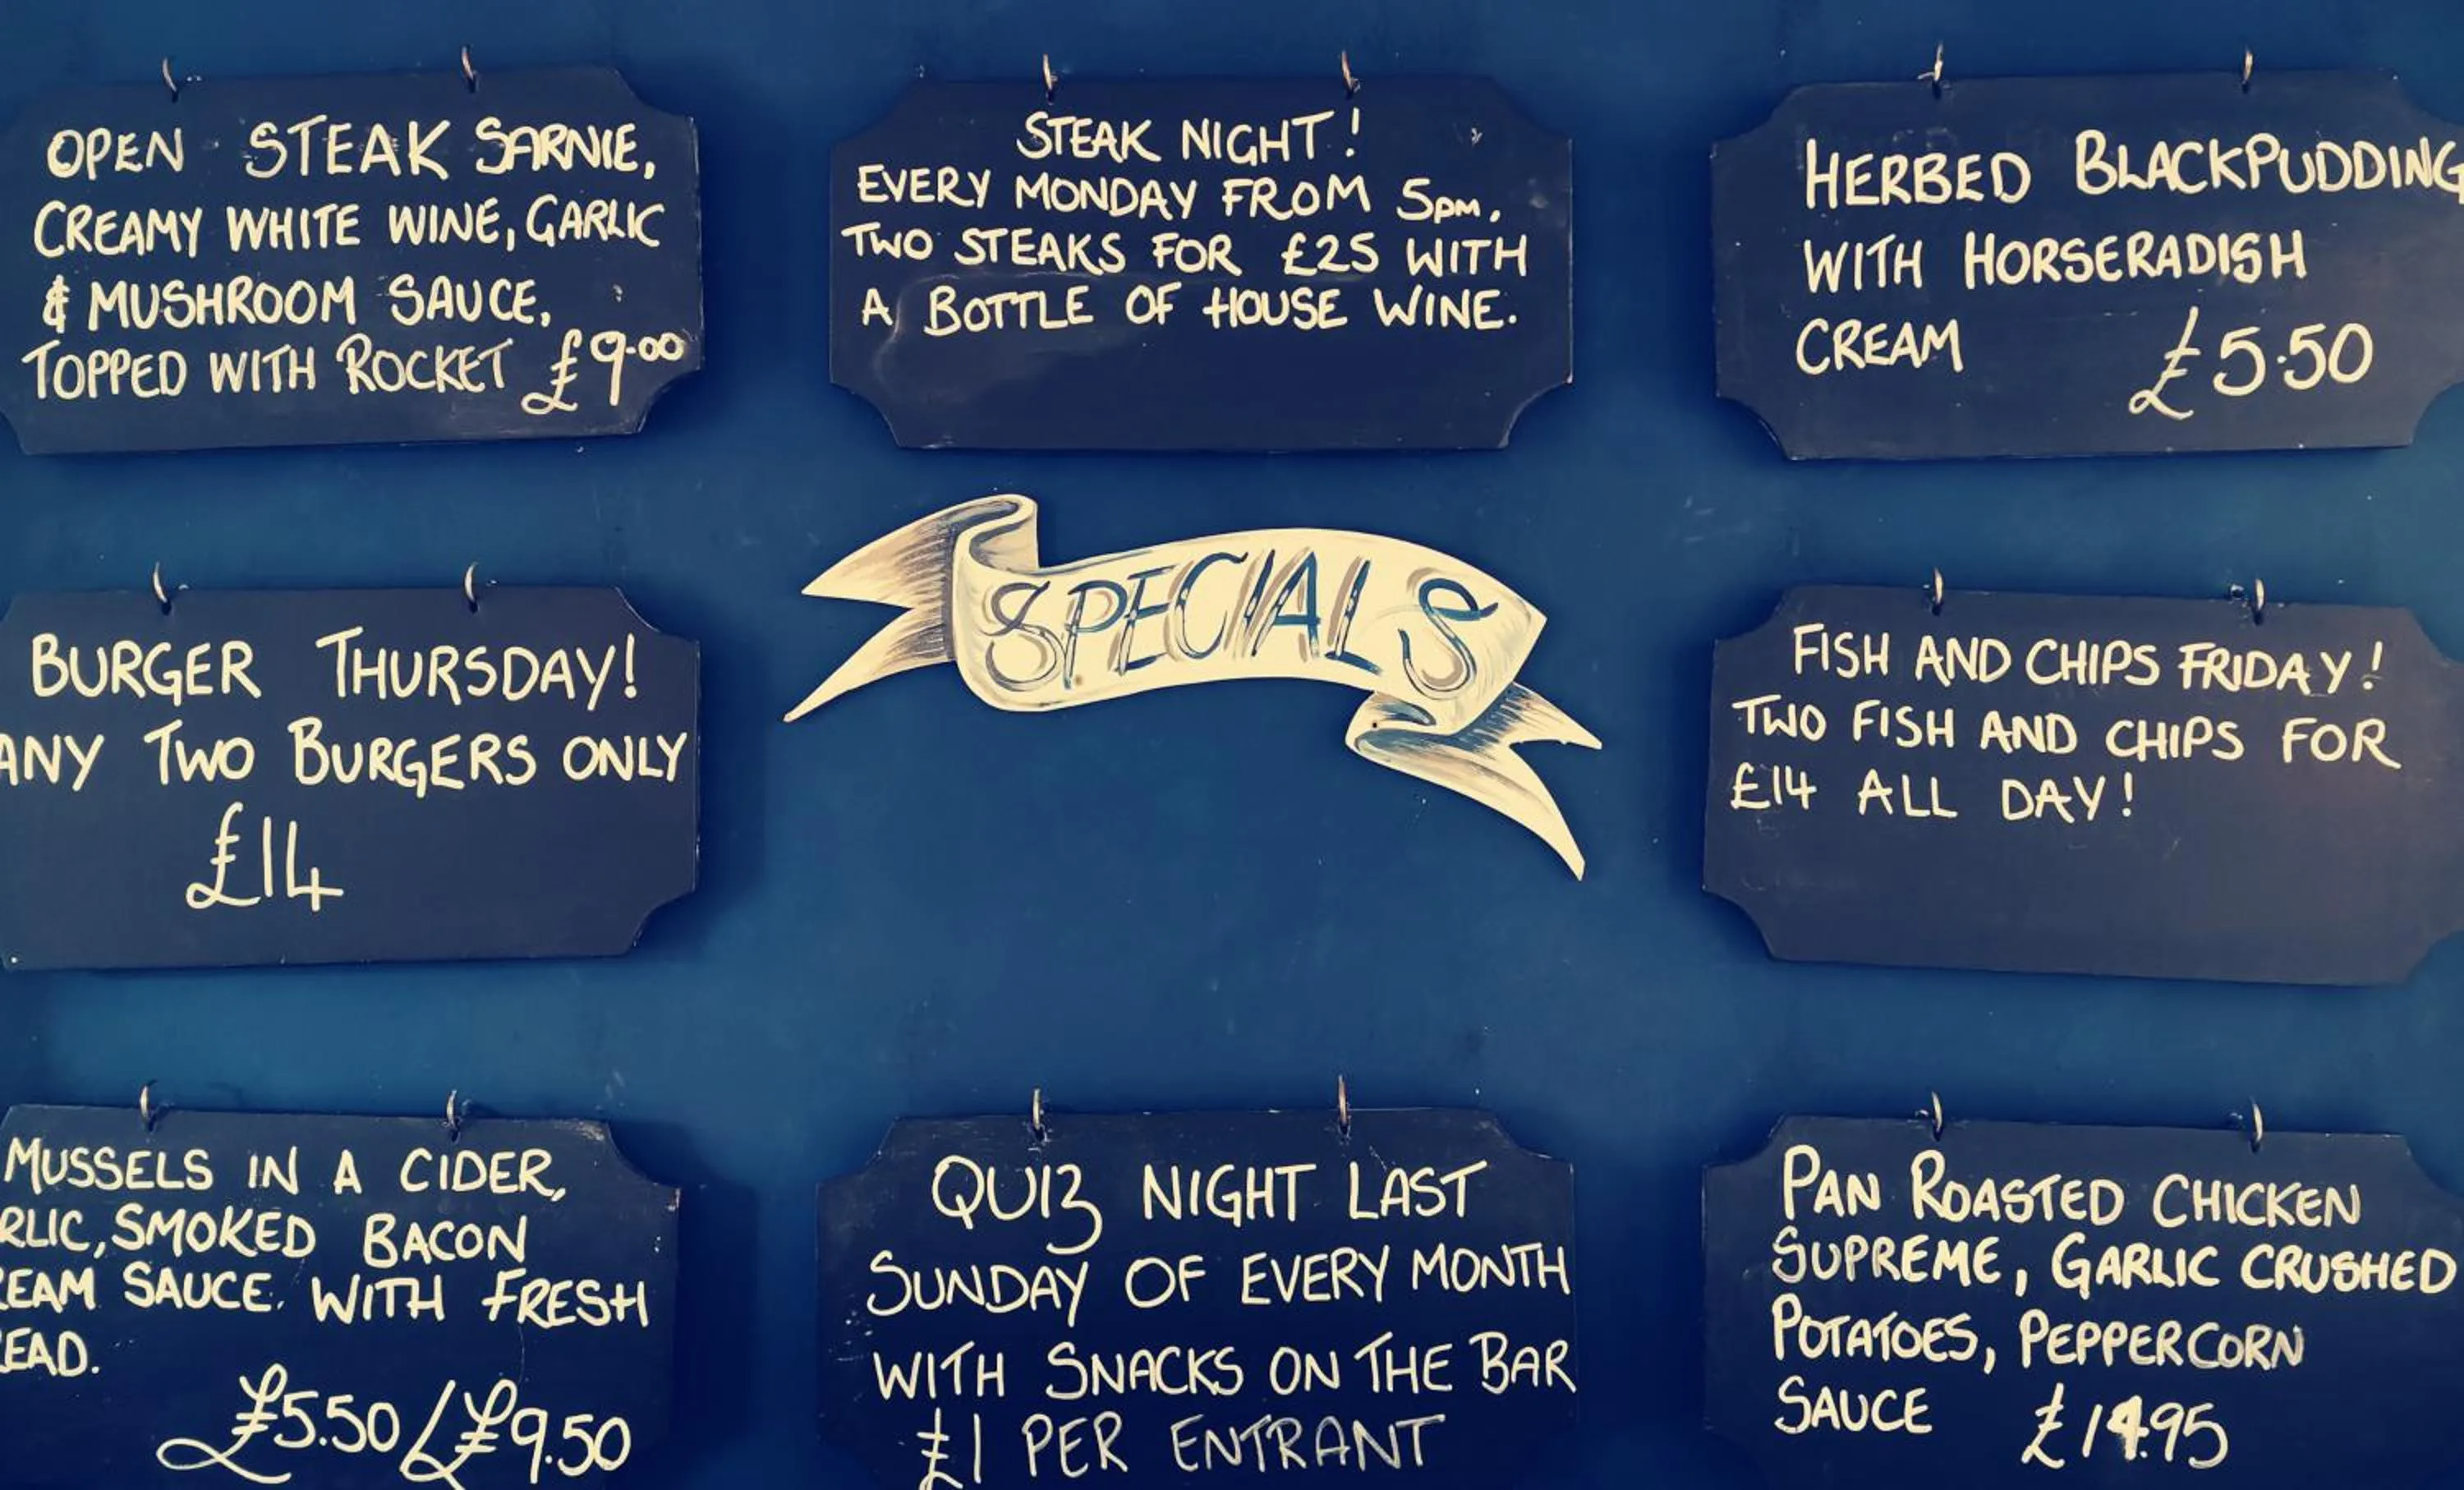 OPEN STEAK SARNIE,
CREAMY WHITE WINE, GARLIC
& MUSHROOM SAUCE,
TOPPED WITH ROCKET £9.00
STEAK NIGHT!
EVERY MONDAY FROM 5pm,
TWO STEAKS FOR £25 WITH
A BOTTLE OF HOUSE WINE.
HERBED BLACKPUDDING
WITH HORSERADISH
CREAM £5.50
BURGER THURSDAY!
ANY TWO BURGERS ONLY
£14
SPECIALS
FISH AND CHIPS FRIDAY!
TWO FISH AND CHIPS FOR
£14 ALL DAY!
MUSSELS IN A CIDER,
RLIC, SMOKED BACON
EAM SAUCE. WITH FRESH
EAD.
£5.50/£9.50
QUIZ NIGHT LAST
SUNDAY OF EVERY MONTH
WITH SNACKS ON THE BAR
£1 PER ENTRANT
PAN ROASTED CHICKEN
SUPREME, GARLIC CRUSHED
POTATOES, PEPPERCORN
SAUCE £14.95